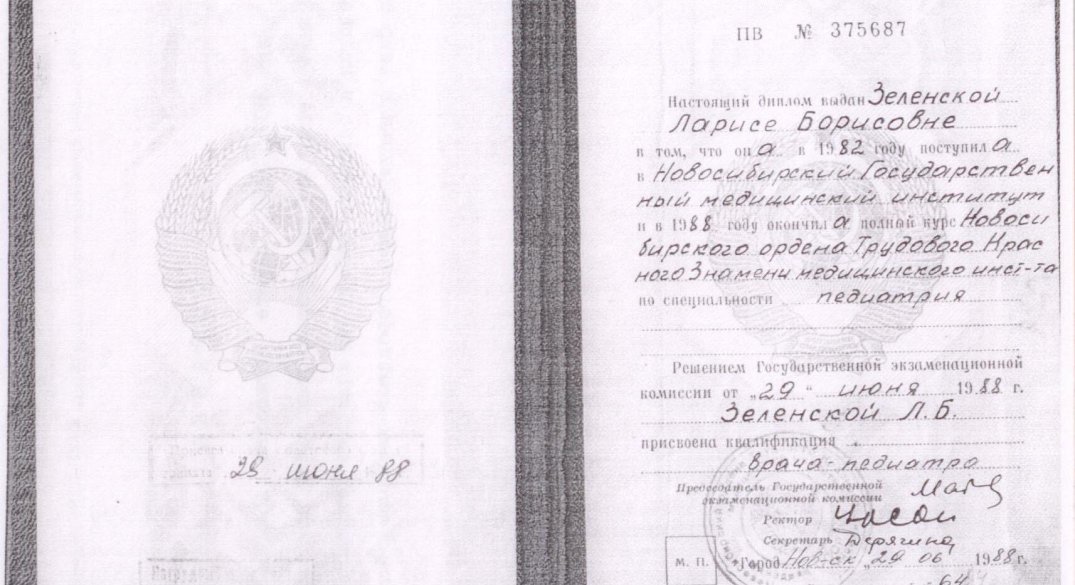 29 июня 88
ПВ № 375687
Настоящий диплом выдан Зеленской
Ларисе Борисовне
в том, что он а в 1982 году поступил а
в Новосибирский Государствен
ный медицинский институт
и в 1988 году окончил а полный курс Новоси
бирского ордена Трудового Крас
ного Знамени медицинского инст-та
по специальности педиатрия
Решением Государственной экзаменационной
комиссии от „29“ июня 1988 г.
Зеленской Л.Б.
присвоена квалификация
врача-педиатра
Председатель Государственной
экзаменационной комиссии
Ректор
Секретарь Дерягина
М. П. Город Нов-ск „29 06 1988 г.